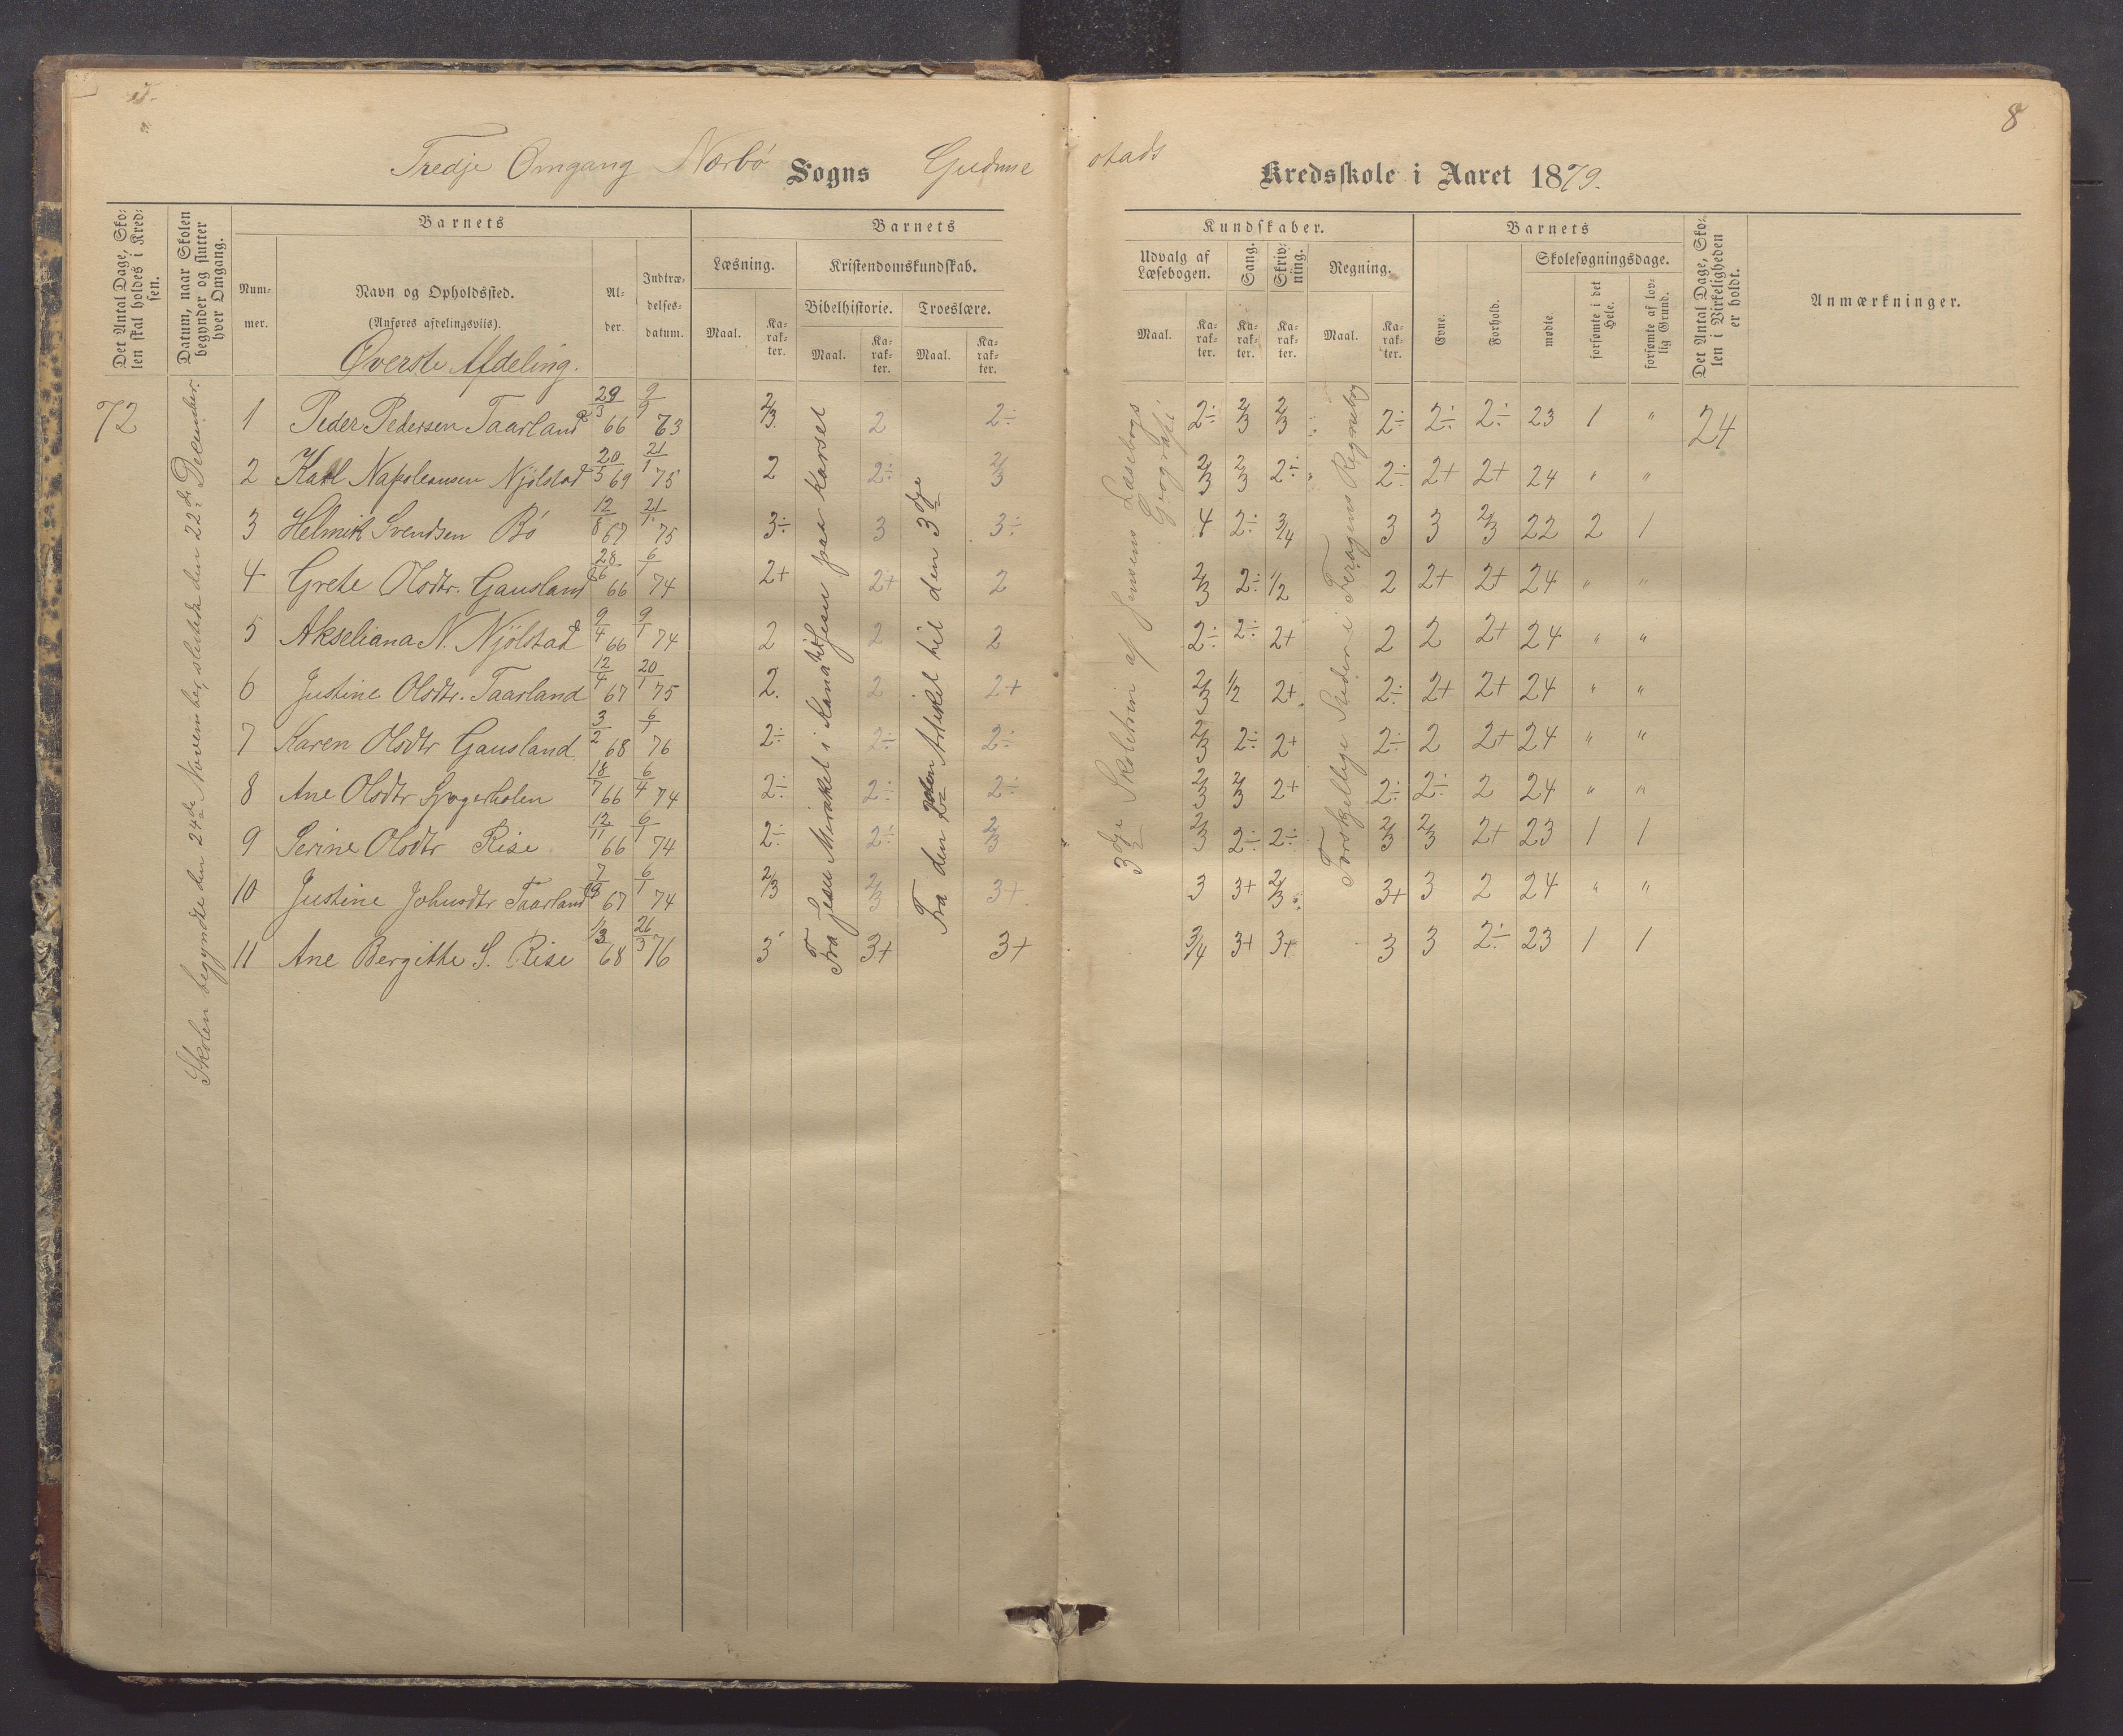 8
Tredje Omgang Nærbø Sogns Gudme stads Kredsskole i Aaret 1879.
Det Antal Dage, Skolen skal holdes i Kredsen.
Datum, naar Skolen begynder og slutter hver Omgang.
Barnets
Nummer.
Navn og Opholdssted.
(Anføres afdelingsviis).
Alder.
Indtrædelsesdatum.
Barnets Kundskaber.
Læsning.
Maal. Karakter.
Kristendomskundskab.
Bibelhistorie. Troeslære.
Maal. Karakter. Maal. Karakter.
Udvalg af Læsebogen.
Maal. Karakter.
Sang.
Karakter.
Skrivning.
Karakter.
Regning.
Maal. Karakter.
Barnets
Evne. Forhold.
Skolesøgningsdage.
mødte. forsømte i det Hele. forsømte af lovlig Grund.
Det Antal Dage, Skolen i Virkeligheden er holdt.
Anmærkninger.
Øverste Afdeling.
72
Skolen begyndte den 24de November, sluttede den 22de December.
Fra Jesu Mirakel i Kana til Jesu paa korset
Fra den 2den Artikel til den 3dje
3dje Skoletrin af Jensens Læsebogs Geografi
Forskjellige Steder i Feragens Regnebog
1 Peder Pedersen Taarland 29/3 66 9/9 73 2/3 2 2÷ 2÷ 2/3 2/3 2÷ 2÷ 2÷ 23 1 " 24
2 Karl Napoleonsen Njølstad 20/5 69 21/1 75 2 2÷ 2/3 2/3 2/3 2÷ 2÷ 2+ 2+ 24 " "
3 Helmik Svendsen Bø 12/8 67 21/1 75 3÷ 3 3÷ 4 2÷ 3/4 3 3 2/3 22 2 1
4 Grete Olsdtr. Gausland 28/6 66 6/1 74 2+ 2+ 2 2/3 2÷ 1/2 2 2+ 2+ 24 " "
5 Akseliana N. Njølstad 9/4 66 9/1 74 2 2 2 2÷ 2÷ 2+ 2 2 2+ 24 " "
6 Justine Olsdtr. Taarland 12/4 67 20/1 75 2. 2 2+ 2/3 1/2 2+ 2÷ 2+ 2+ 24 " "
7 Karen Olsdtr Gausland 3/2 68 6/1 76 2÷ 2÷ 2÷ 2/3 2÷ 2+ 2÷ 2 2+ 24 " "
8 Ane Olsdtr 18/7 66 6/4 74 2÷ 2÷ 2÷ 2/3 2/3 2+ 2÷ 2÷ 2 24 " "
9 Serine Olsdtr Rise 12/11 66 6/1 74 2÷ 2÷ 2/3 2/3 2÷ 2÷ 2/3 2/3 2+ 23 1 1
10 Justine Johnsdtr Taarland 67 6/1 74 2/3 2/3 3+ 3 3+ 2/3 3+ 3 2 24 " "
11 Ane Bergitte S. Rise 68 26/3 76 3 3+ 3+ 3/4 3+ 3+ 3 3 2÷ 23 1 1